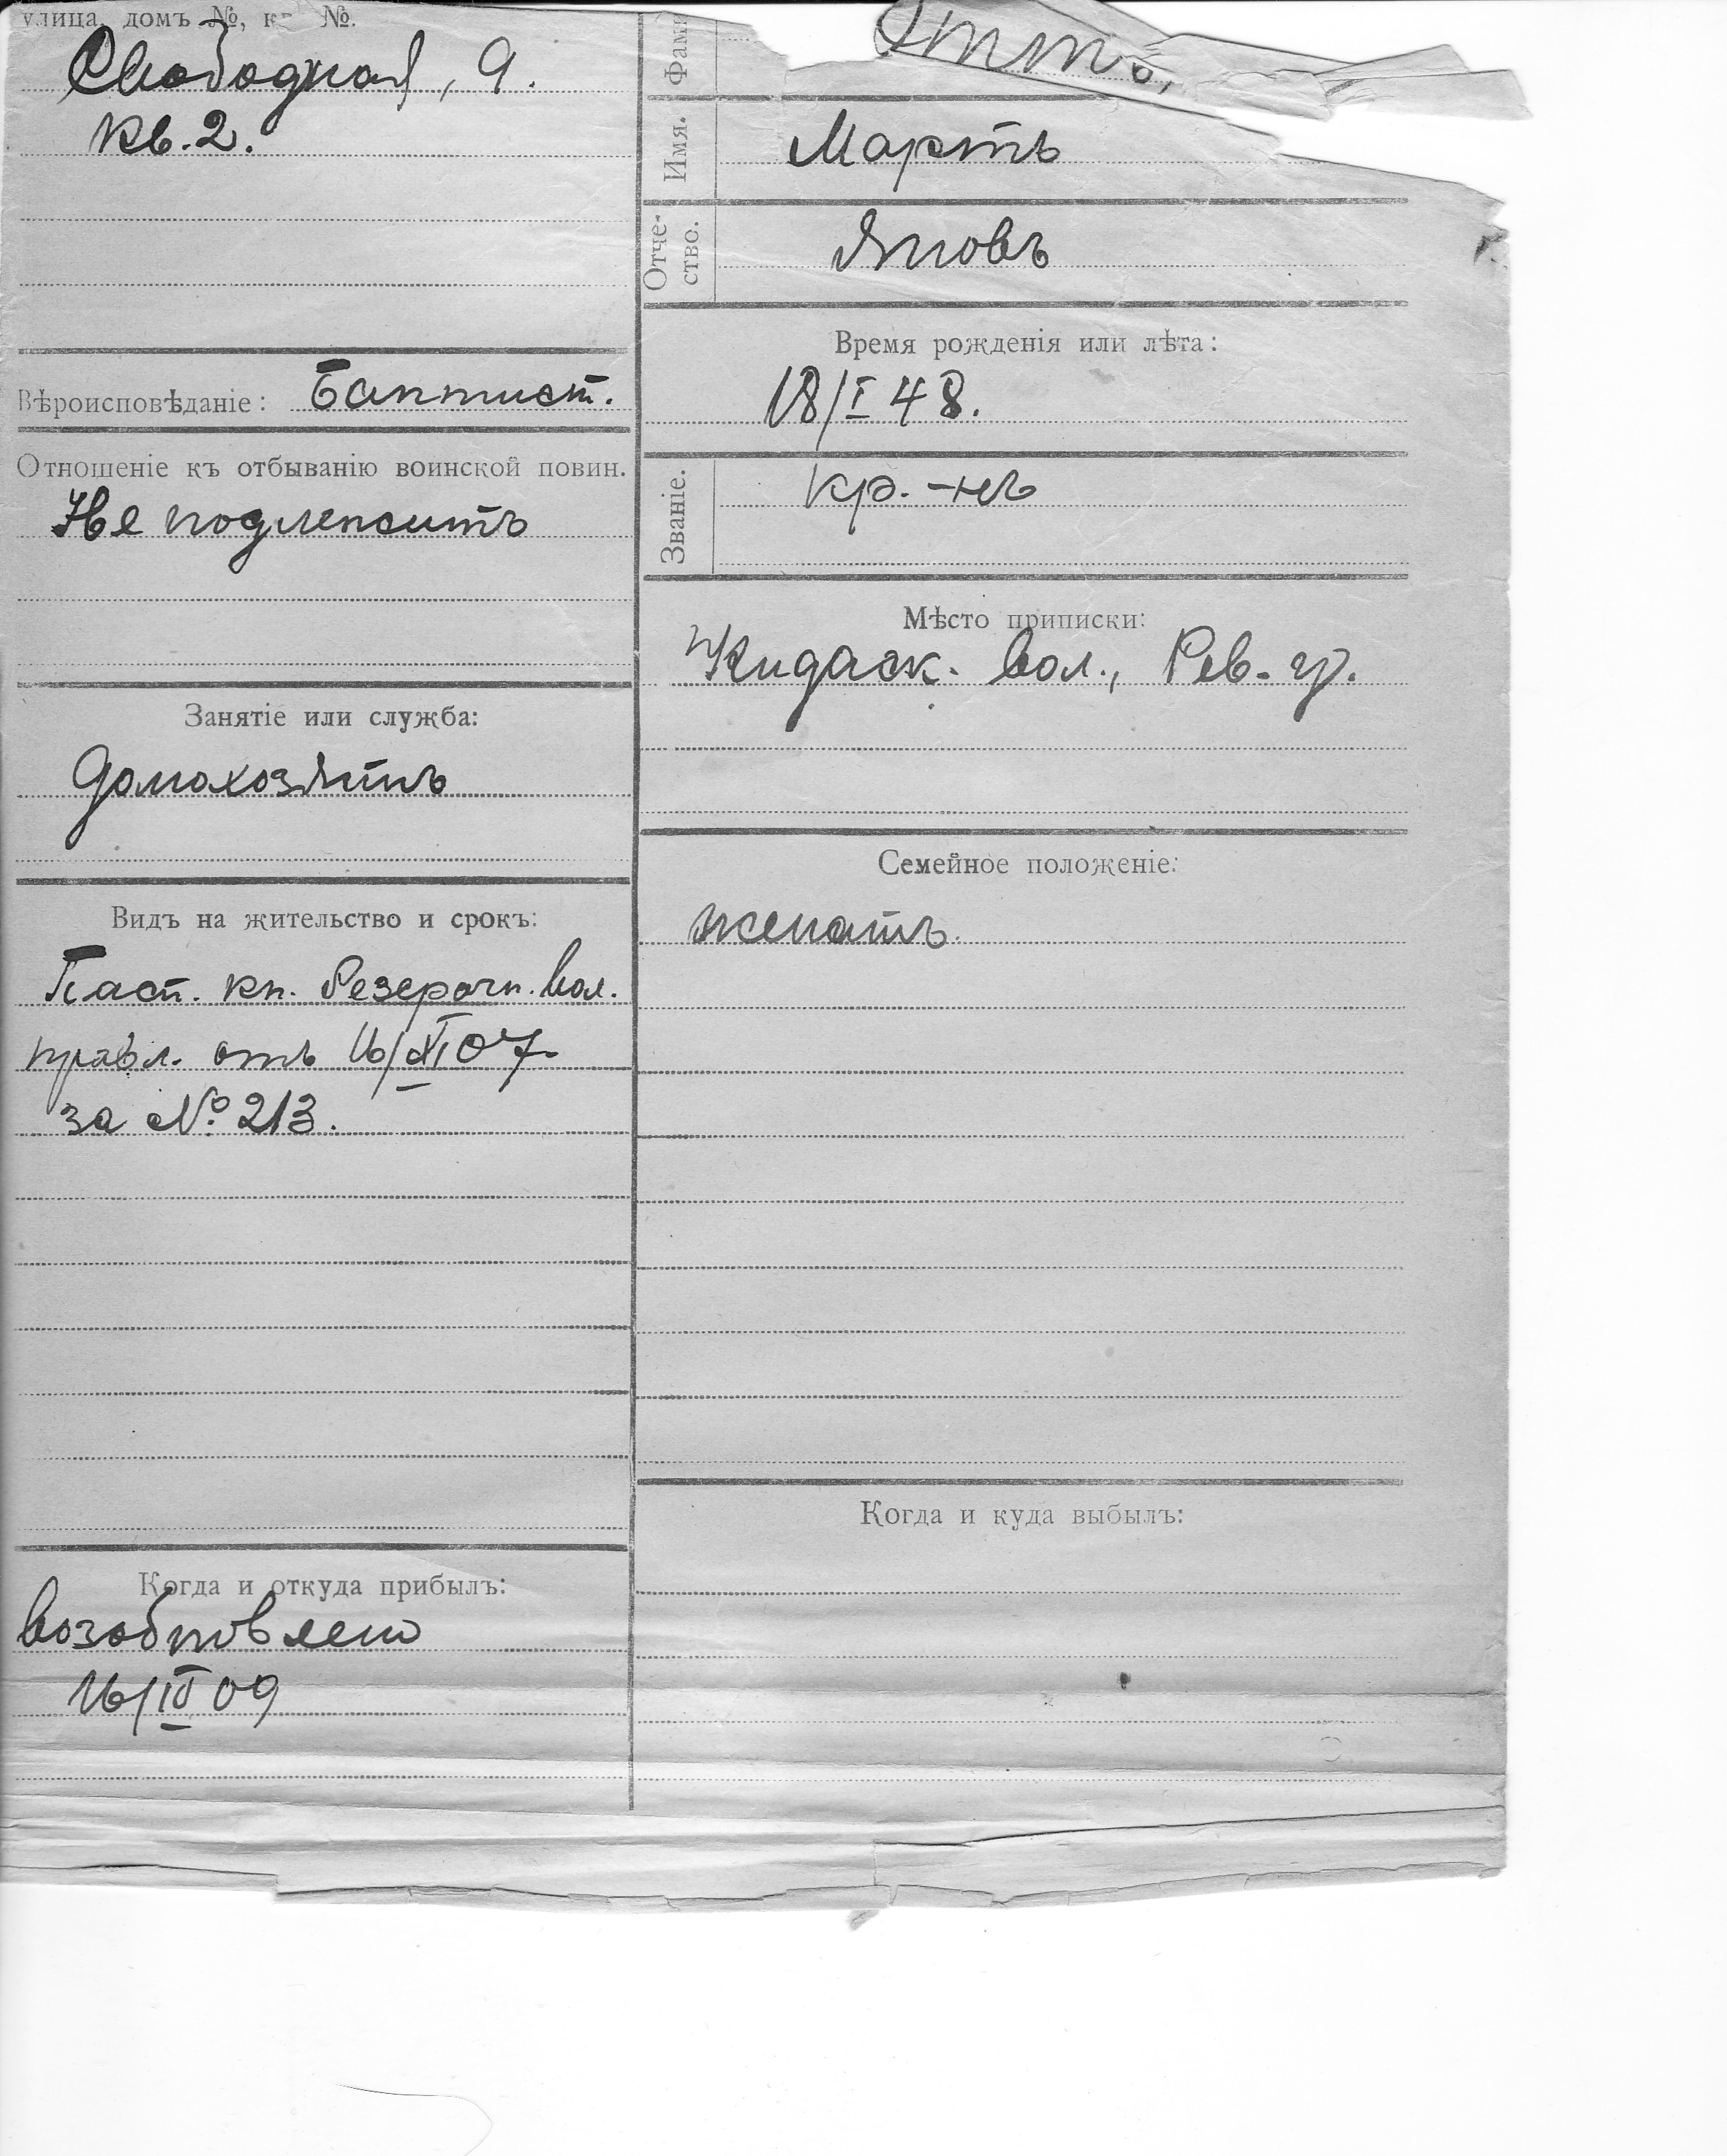 улица, домъ №, кв №.
Свободная, 9.
кв. 2.
Вѣроисповѣданіе: Баптист.
Отношеніе къ отбыванію воинской повин.
Не подлежитъ
Занятіе или служба:
Домохозяинъ
Видъ на жительство и срокъ:
Пасп. кн. вол.
правл. отъ 16/XI 07
за № 213.
Когда и откуда прибылъ:
возобновлено
16/IV 09
Фами
Имя. Мартъ
Отче-
ство. Яновъ
Время рожденія или лѣта:
18/I 48.
Званіе. кр.-нъ
Мѣсто приписки:
вол., Рев. г.
Семейное положеніе:
женатъ.
Когда и куда выбылъ: